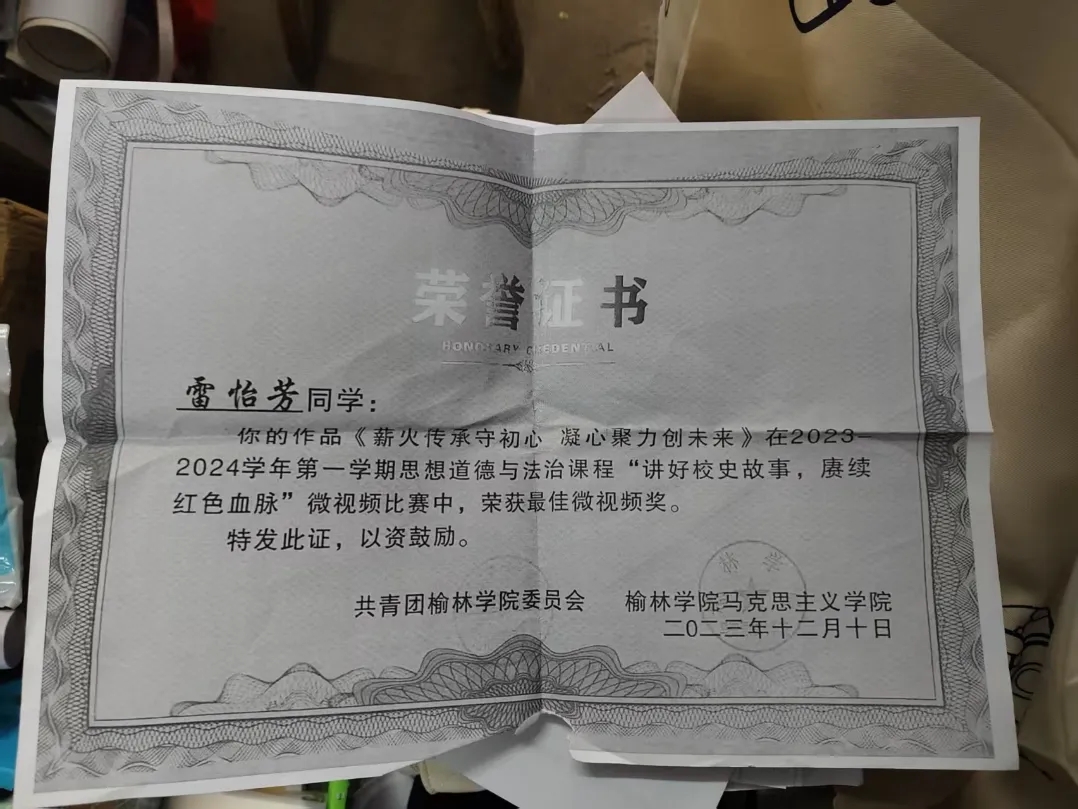 荣誉证书
HONORARY CREDENTIAL
雷怡芳同学：
你的作品《薪火传承守初心 凝心聚力创未来》在2023-
2024学年第一学期思想道德与法治课程“讲好校史故事，赓续
红色血脉”微视频比赛中，荣获最佳微视频奖。
特发此证，以资鼓励。
共青团榆林学院委员会 榆林学院马克思主义学院
二〇二三年十二月十日